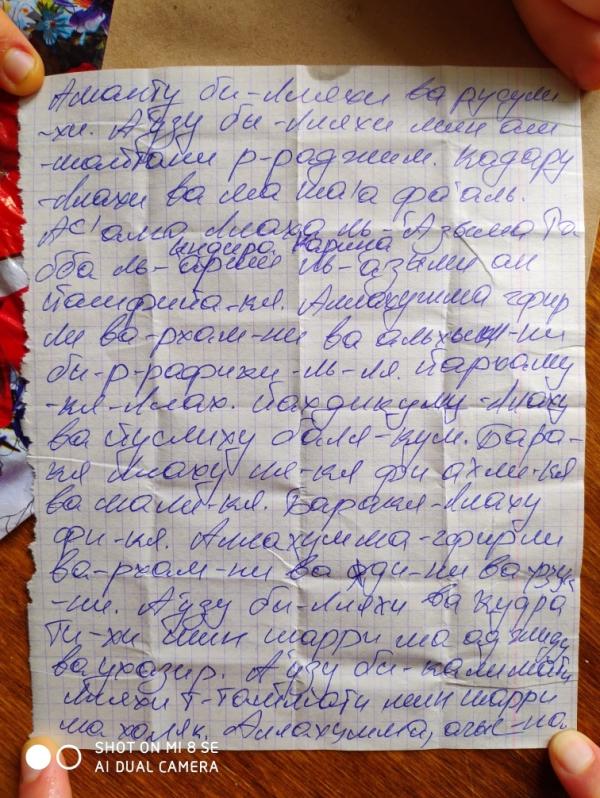 Аманту би-Лляхи ва русули
-хи. А'узу би-Лляхи мин аш
-шайтани р-раджим. Кадару
-Ллахи ва ма ша'а фа'аль.
Ас'алю Ллаха ль-'Азыма Ра
Кидира Карина
бба ль-'арши ль-'азыми ан
йашфийа-кя. Аллахумма-гфир
ли ва-рхам-ни ва альхыкни-ни
би-р-рафики-ль-ля. Йархаму
-кя-Ллах. Йахдикуму-Ллаху
ва йуслиху баля-кум. Бара-
кя Ллаху ля-кя фи ахли-кя
ва мали-кя. Баракя-Ллаху
фи-кя. Аллахумма-гфирли
ва-рхам-ни ва хди-ни ва-рзук
-ни. А'узу би-Лляхи ва кудра
ти-хи мин шарри ма аджиду
ва ухазир. А'узу би-калимати
Лляхи т-таммати мин шарри
ма халяк. Аллахумма,
SHOT ON MI 8 SE
AI DUAL CAMERA